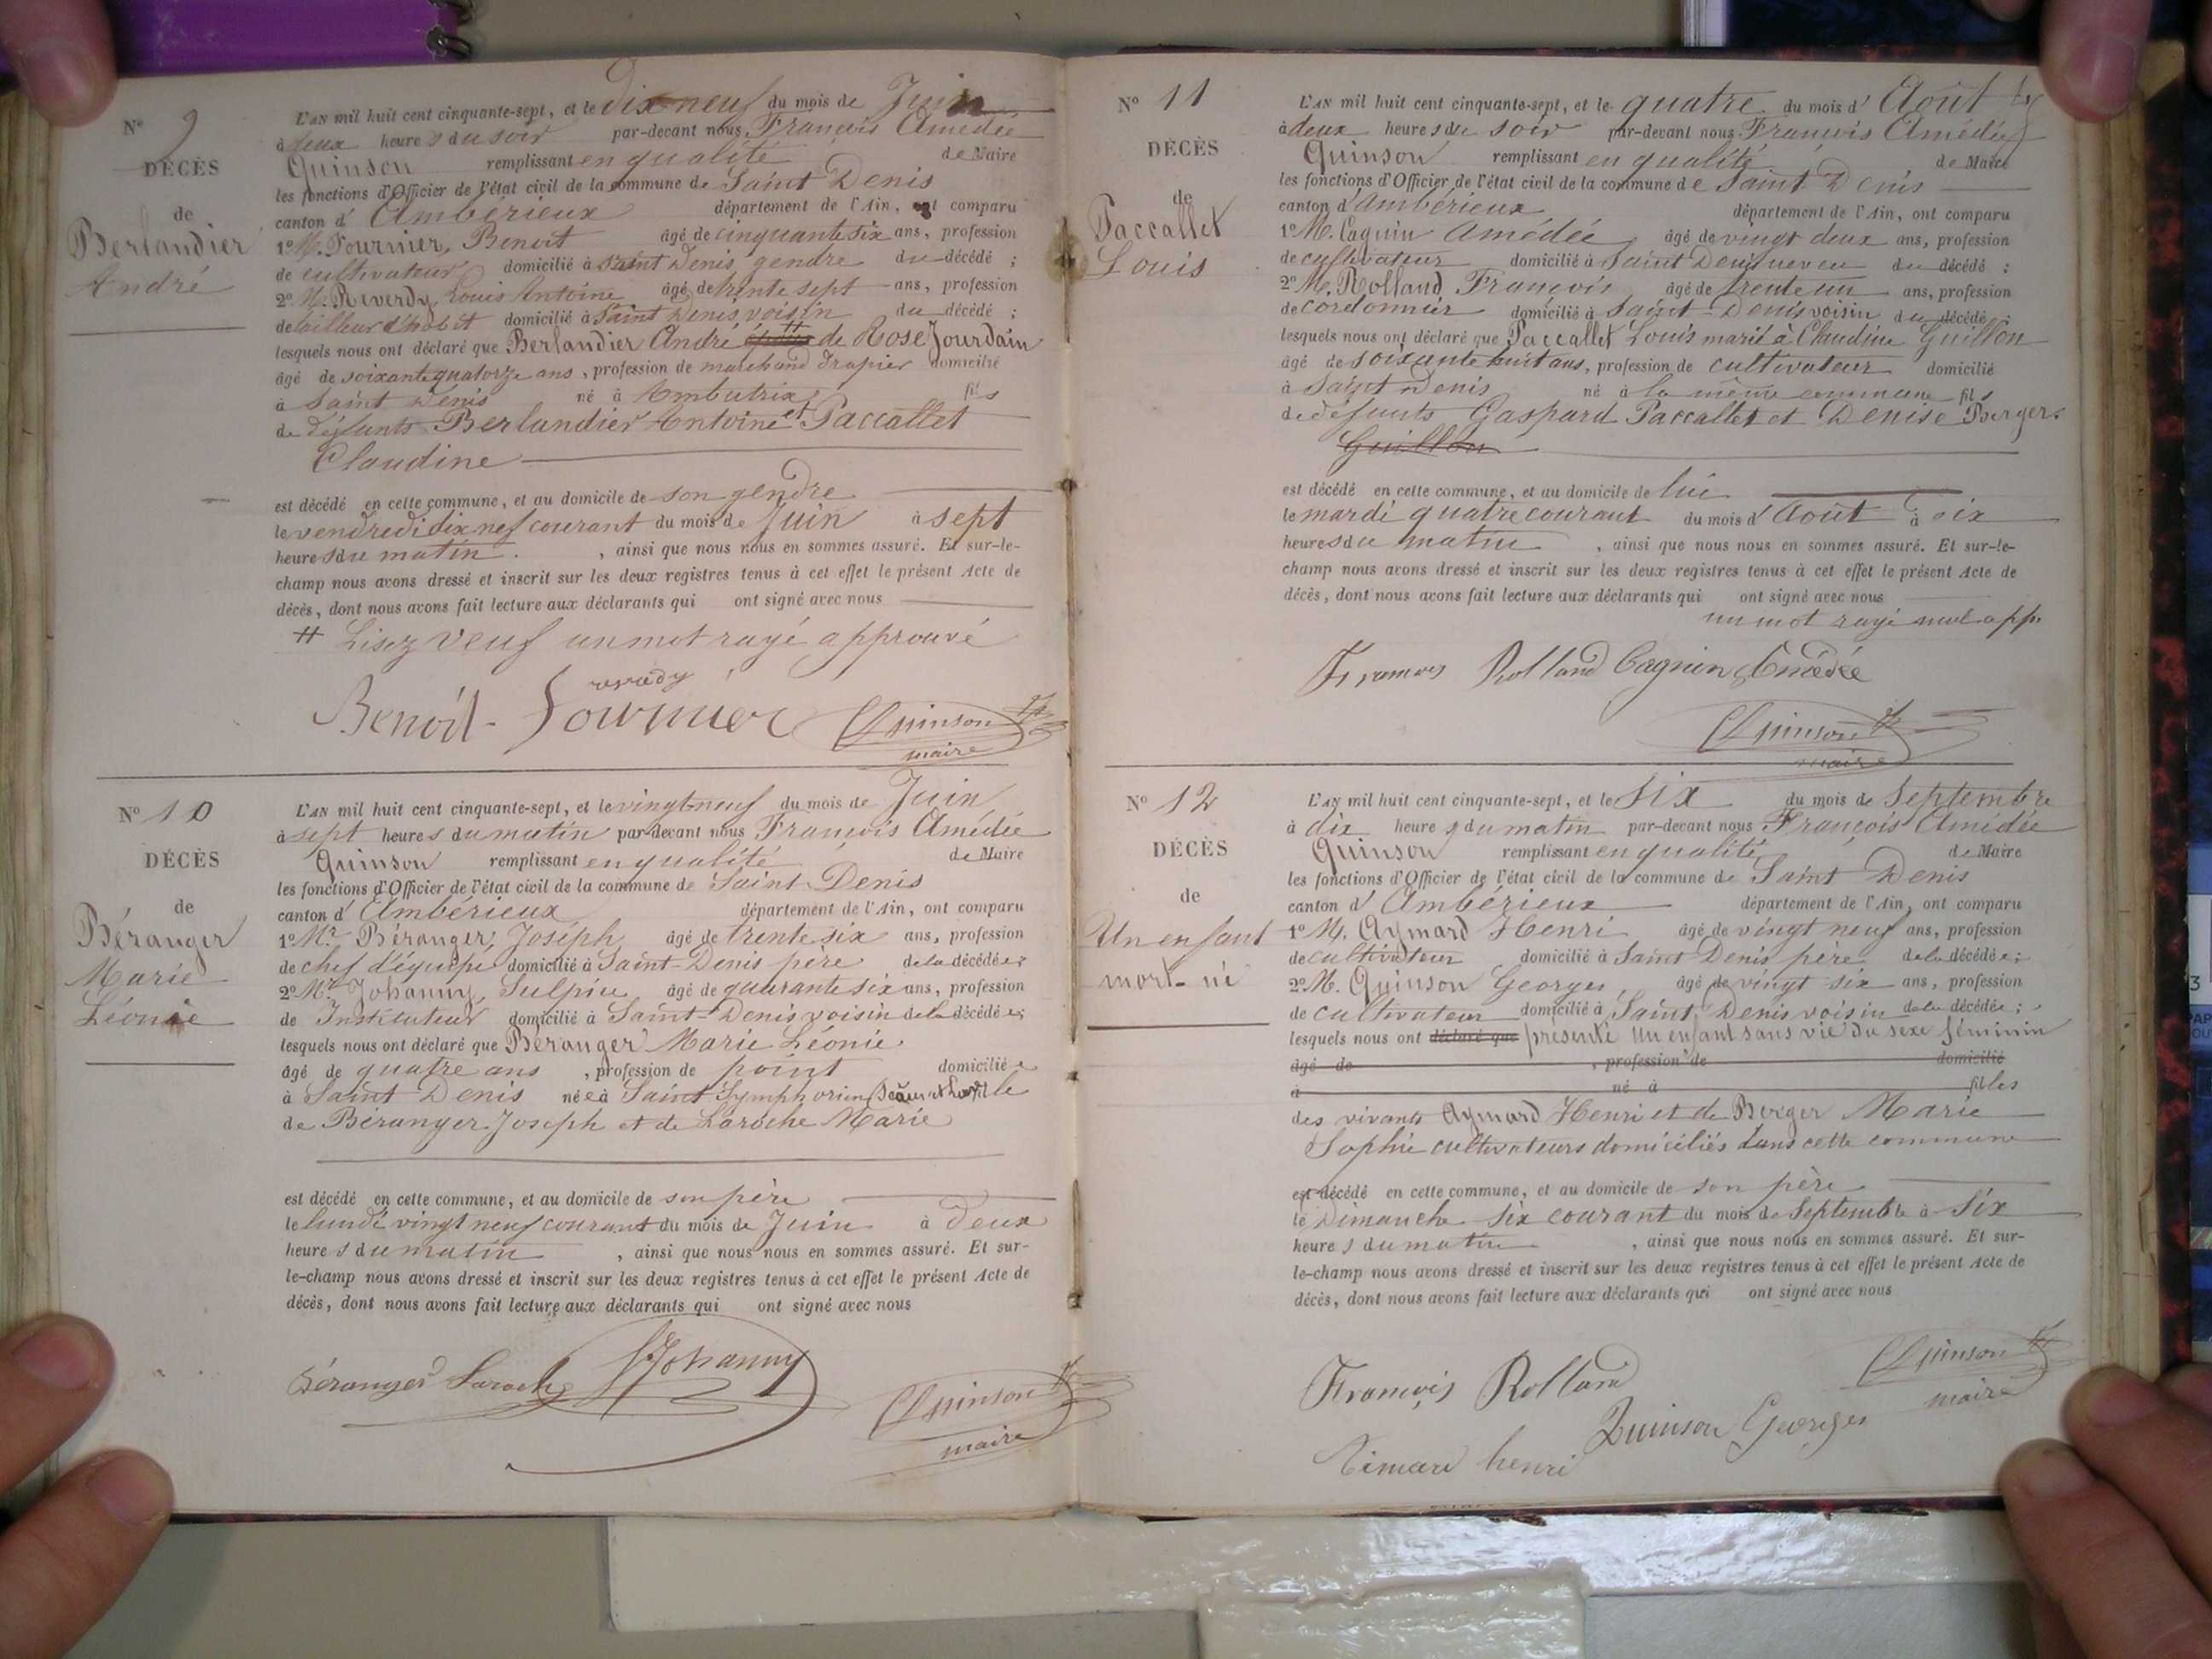 N° 9
DÉCÈS
de
Berlandier
André
L'AN mil huit cent cinquante-sept, et le dix neuf du mois de Juin
à deux heures du soir par-devant nous François Amédée
Quinson remplissant en qualité de Maire
les fonctions d'Officier de l'état civil de la commune de Saint Denis
canton d' Ambérieux département de l'Ain, ont comparu
1° M. Fournier, Benoit âgé de cinquante six ans, profession
de cultivateur domicilié à Saint Denis gendre du décédé ;
2° M. Reverdy Louis Antoine âgé de trente sept ans, profession
de tailleur d'habit domicilié à Saint Denis voisin du décédé ;
lesquels nous ont déclaré que Berlandier André époux # de Rose Jourdain
âgé de soixante quatorze ans, profession de marchand drapier domicilié
à Saint Denis né à Ambutrix fils
de défunts Berlandier Antoine et Paccallet
Claudine
est décédé en cette commune, et au domicile de son gendre
le vendredi dix nef courant du mois de Juin à sept
heures du matin , ainsi que nous nous en sommes assuré. Et sur-le-
champ nous avons dressé et inscrit sur les deux registres tenus à cet effet le présent Acte de
décès, dont nous avons fait lecture aux déclarants qui ont signé avec nous
# Lisez veuf un mot rayé approuvé
reverdy
Benoit Fournier Quinson
maire
N° 10
DÉCÈS
de
Béranger
Marie
Léonie
L'AN mil huit cent cinquante-sept, et le vingt neuf du mois de Juin
à sept heures du matin par-devant nous François Amédée
Quinson remplissant en qualité de Maire
les fonctions d'Officier de l'état civil de la commune de Saint Denis
canton d' Ambérieux département de l'Ain, ont comparu
1° Mr Béranger, Joseph âgé de trente six ans, profession
de chef d'équipe domicilié à Saint-Denis père de la décédée ;
2° Mr Johanny, Sulpice âgé de quarante six ans, profession
de Instituteur domicilié à Saint-Denis voisin de la décédée ;
lesquels nous ont déclaré que Béranger Marie Léonie
âgé de quatre ans , profession de point domiciliée
à Saint Denis née à Saint Symphorien fille
de Béranger Joseph et de Laroche Marie
est décédé en cette commune, et au domicile de son père
le lundi vingt neuf courant du mois de Juin à deux
heures du matin , ainsi que nous nous en sommes assuré. Et sur-
le-champ nous avons dressé et inscrit sur les deux registres tenus à cet effet le présent Acte de
décès, dont nous avons fait lecture aux déclarants qui ont signé avec nous
Béranger Laroche Johanny
Quinson
maire
N° 11
DÉCÈS
de
Paccallet
Louis
L'AN mil huit cent cinquante-sept, et le quatre du mois d' Août
à deux heures du soir par-devant nous François Amédée
Quinson remplissant en qualité de Maire
les fonctions d'Officier de l'état civil de la commune de Saint Denis
canton d' Ambérieux département de l'Ain, ont comparu
1° M. Cagnin Amédée âgé de vingt deux ans, profession
de cultivateur domicilié à Saint Denis neveu du décédé ;
2° M. Rolland François âgé de trente un ans, profession
de cordonnier domicilié à Saint-Denis voisin du décédé ;
lesquels nous ont déclaré que Paccallet Louis marié à Claudine Guillon
âgé de soixante huit ans, profession de cultivateur domicilié
à Saint Denis né à la même commune fils
de défunts Gaspard Paccallet et Denise Berger
Guillon
est décédé en cette commune, et au domicile de lui
le mardi quatre courant du mois d' Août à six
heures du matin , ainsi que nous nous en sommes assuré. Et sur-le-
champ nous avons dressé et inscrit sur les deux registres tenus à cet effet le présent Acte de
décès, dont nous avons fait lecture aux déclarants qui ont signé avec nous
un mot rayé nul app.
François Rolland Cagnin Amédée
Quinson
maire
N° 12
DÉCÈS
de
Un enfant
mort-né
L'AN mil huit cent cinquante-sept, et le six du mois de Septembre
à dix heures du matin par-devant nous François Amédée
Quinson remplissant en qualité de Maire
les fonctions d'Officier de l'état civil de la commune de Saint Denis
canton d' Ambérieux département de l'Ain, ont comparu
1° M. Aymard Henri âgé de vingt neuf ans, profession
de cultivateur domicilié à Saint Denis père de la décédée ;
2° M. Quinson Georges, âgé de vingt six ans, profession
de cultivateur domicilié à Saint Denis voisin de la décédée ;
lesquels nous ont déclaré que présenté un enfant sans vie du sexe féminin
âgé de , profession de domicilié
à né à filles
des vivants Aymard Henri et de Berger Marie
Sophie cultivateurs domiciliés dans cette commune
est décédé en cette commune, et au domicile de son père
le Dimanche six courant du mois de Septembre à six
heures du matin , ainsi que nous nous en sommes assuré. Et sur-
le-champ nous avons dressé et inscrit sur les deux registres tenus à cet effet le présent Acte de
décès, dont nous avons fait lecture aux déclarants qui ont signé avec nous
Quinson
maire
François Rolland
Quinson Georges
Aimard henri